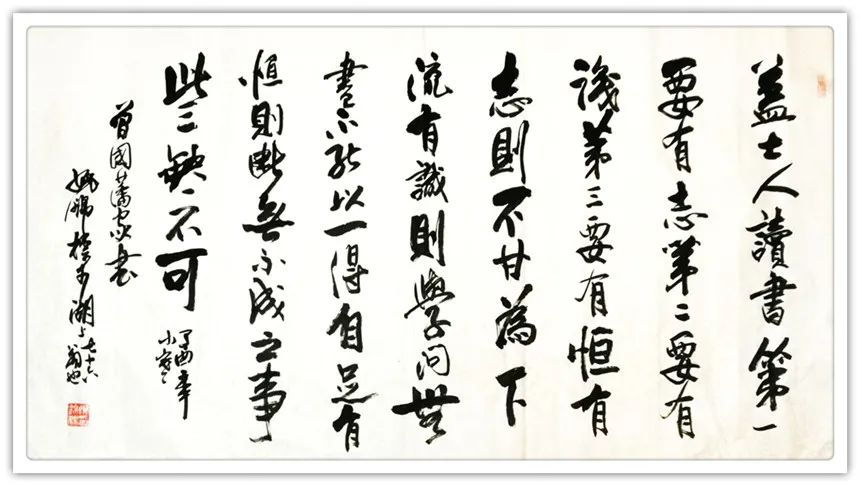 盖士人讀書第一
要有志第二要有
識第三要有恒有
志則不甘為下
流有識則學问無
盡不能以一得自足有
恒則斷無不成之事
此三缺一不可
丁酉年
小寒
曾國藩家書
姚鵬標于湖上七十六翁